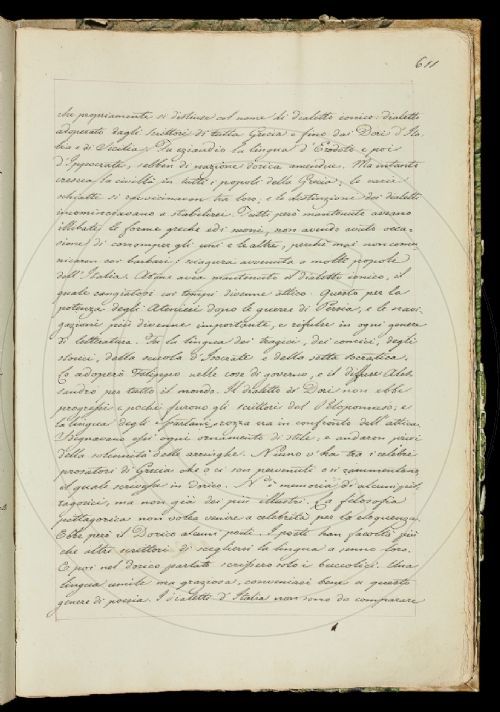 611
che propriamente si distinse col nome di dialetto ionico: dialetto
adoperato dagli scrittori di tutta Grecia e fino da' Dori d'Ita-
lia e di Sicilia. Fu eziandio la lingua d'Erodoto e poi
d'Ippocrate, sebben di nazione dorica amendue. Ma intanto
cresceva la civiltà in tutti i popoli della Grecia; le varie
schiatte si ravvicinavan tra loro; e le distinzioni dei dialetti
incominciavano a stabilirsi. Tutti però mantenute aveano
illibate le forme greche ed i suoni, non avendo avuto occa-
sione di corromper gli uni e le altre, perchè mai non comu-
nicaron coi barbari: sciagura avvenuta a molti popoli
dell'Italia. Atene avea mantenuto il dialetto ionico, il
quale cangiatosi coi tempi divenne attico. Questo per la
potenza degli Ateniesi dopo le guerre di Persia, e le navi-
gazioni più divenne importante, e rifulse in ogni genere
di letteratura. Fu la lingua dei tragici, dei comici, degli
storici, della scuola d'Isocrate e della setta socratica.
Lo adoperò Filippo nelle cose di governo, e il diffuse Ales-
sandro per tutto il mondo. Il dialetto de' Dori non ebbe
progressi e pochi furono gli scrittori del Peloponneso; e
la lingua degli Spartani rozza era in confronto dell'attica.
Sdegnavano essi ogni ornamento di stile, e andaron privi
della solennità delle arringhe. Niuno v'ha tra i celebri
prosatori di Grecia che o ci son pervenuti o si rammentano,
il quale scrivesse in dorico. V'è memoria di alcuni pit-
tagorici, ma non già dei più illustri. La filosofia
pittagorica non volea venire a celebrità per la eloquenza.
Ebbe però il Dorico alcuni poeti. I poeti han facoltà più
che altri scrittori di scegliersi la lingua a senno loro.
E poi nel dorico parlato scrissero solo i buccolici. Una
lingua umile ma graziosa, conveniasi bene a questo
genere di poesia. I dialetti d'Italia non sono da comparare